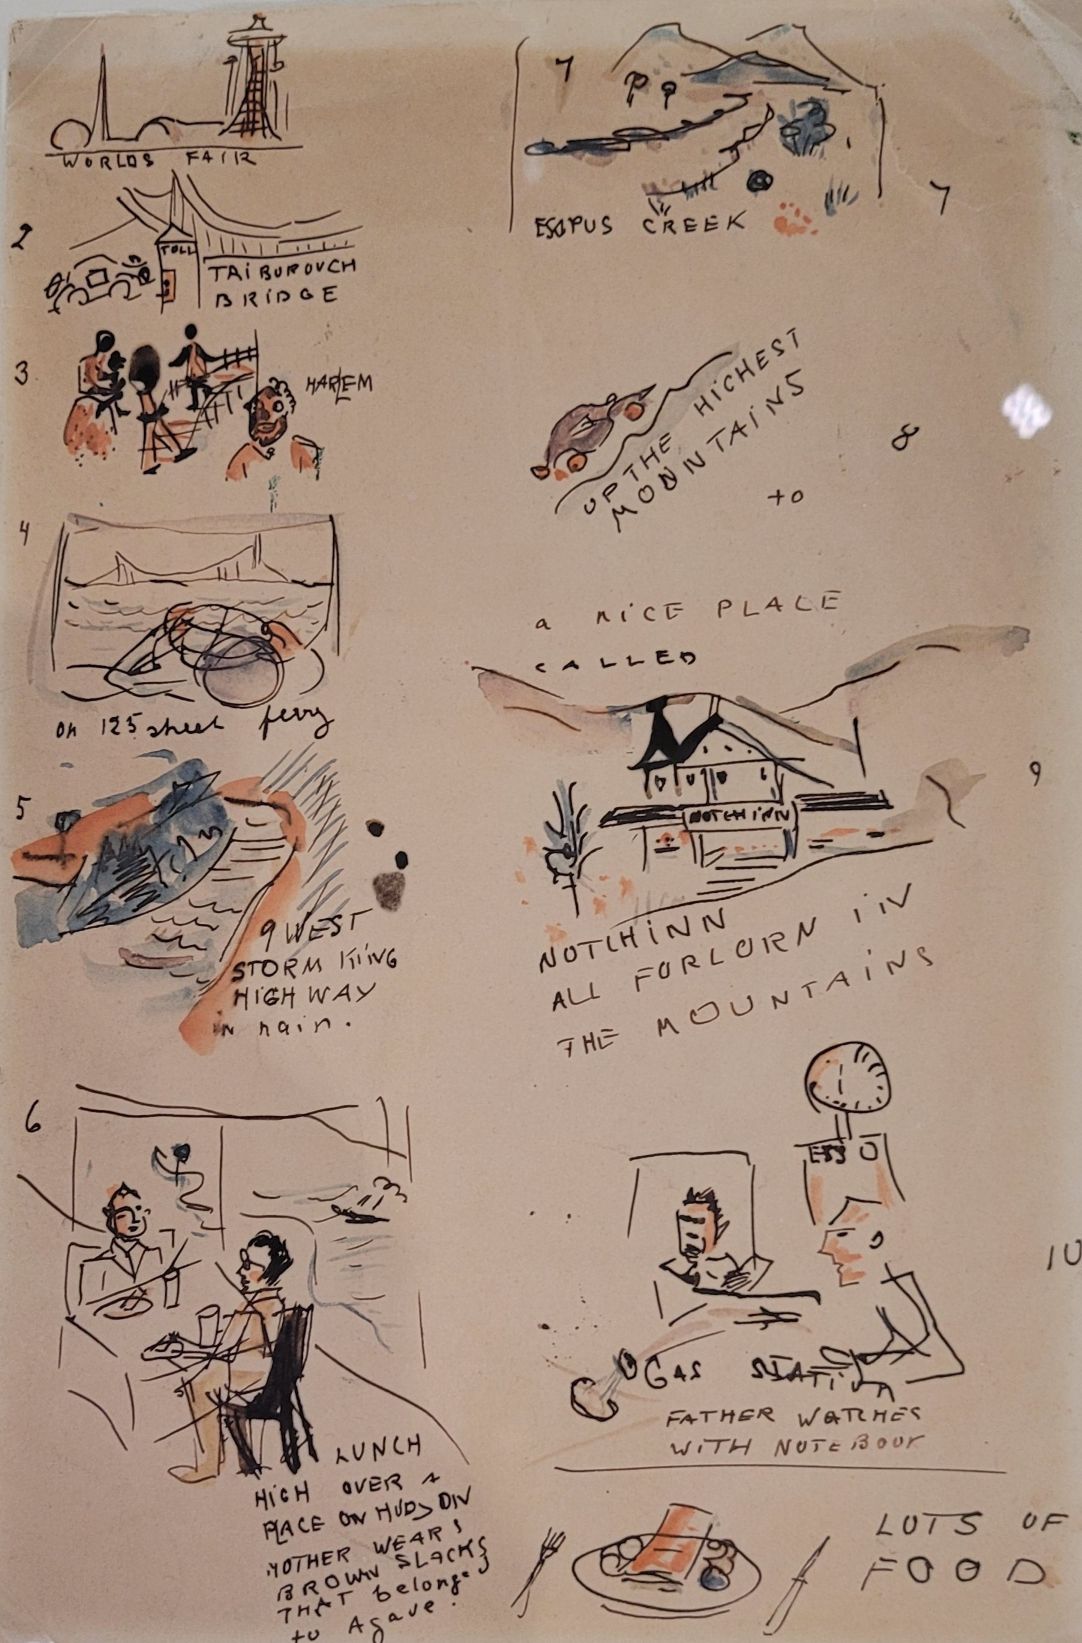 WORLDS FAIR
2
TOLL
TAIBUROUCH
BRIDGE
3
HARLEM
4
on 125 street ferry
5
9 WEST
STORM KING
HIGHWAY
in rain.
6
LUNCH
HIGH OVER A
PLACE ON HUDSON
MOTHER WEARS
BROWN SLACKS
THAT belongs
to Agave.
7
7
ESOPUS CREEK
UP THE HICHEST
MOUNTAINS
8
to
a NICE PLACE
CALLED
9
NOTCHINN
NOTCHINN
ALL FORLORN IN
THE MOUNTAINS
ESSO
10
GAS STATION
FATHER WATCHES
WITH NOTEBOOK
LOTS OF
FOOD